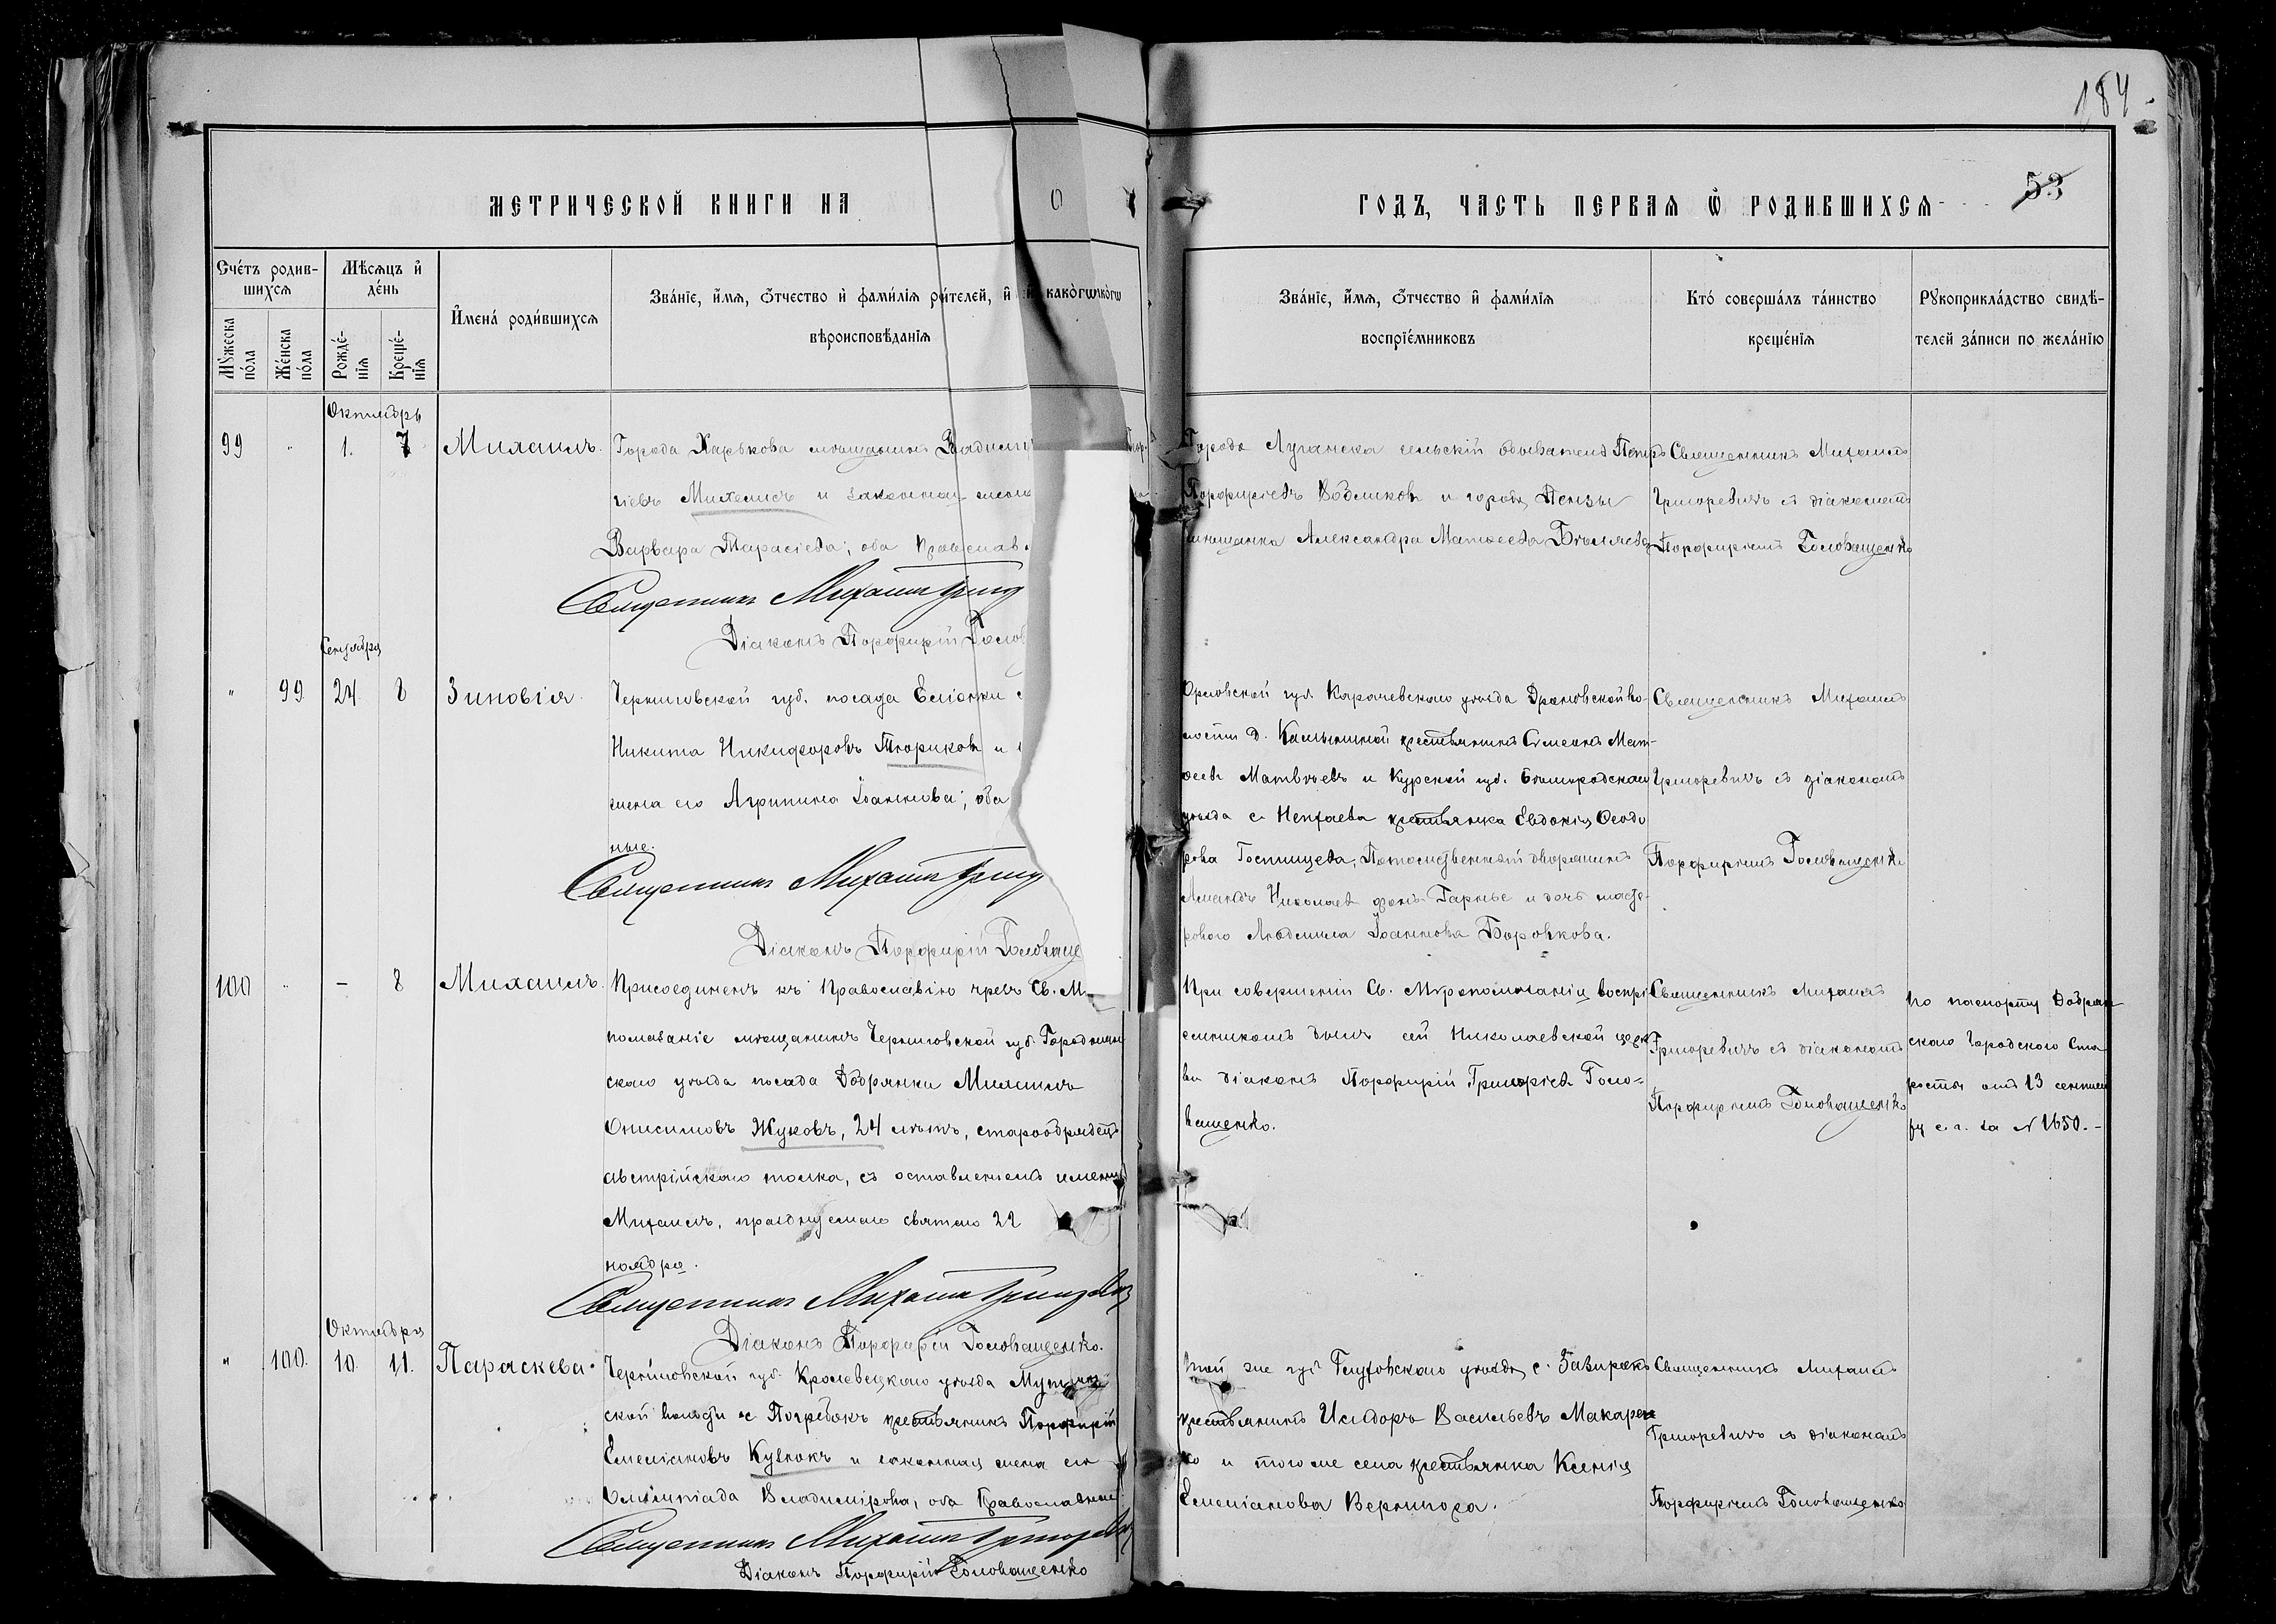 184
МЕТРИЧЕСКОЙ КНИГИ НА
О
ГОДЪ, ЧАСТЬ ПЕРВАЯ Ѡ РОДИВШИХСЯ
53
Счétъ родив-
шихся
Мѣсяцъ и
дéнь
Мꙋжеска
пóла
Жéнска
пóла
Рождé-
нія
Крещé-
нія
Именá родúвшихся
Звáніе, úмя, óтчество и фамúлія
вѣроисповѣданія
Звáніе, úмя, óтчество и фамúлія
воспріéмниковъ
Ктó совершáлъ тáинство
крещéнія
Рꙋкоприклáдство свидѣ-
телей зáписи по желáнію
Октябрь
99 " 1. 7 Михаилъ.
Города Харькова мѣщанинъ
и законная
Варвара Тарасіева; оба Православ
Священникъ Михаилъ
Діаконъ Порфирій
Города Луганска сельскій обыватель Петръ
Порфиріевъ Водолиновъ и города Пензы
мѣщанка Александра Матѳеева Бѣляева
Священникъ Михаилъ
Григоревичъ съ діакономъ
Порфиріемъ Головащенко
Сентября
" 99 24 8 Зиновія.
Черниговской губ. посада Еліонки
Никита Никифоровъ Тюриковъ и
жена его Агрипина Іоаннова; оба
ные.
Священникъ Михаилъ
Діаконъ Порфирій Головаще
Орловской губ. Карачевскаго уѣзда Драгунской во-
лости д. крестьянинъ Симеонъ Мат-
ѳеевъ Матвѣевъ и Курской губ. Бѣлгородскаго
уѣзда с. Непхаева крестьянка Евдокія Ѳеодо
рова Гостищева, Потомственный дворянинъ
Николаевъ фонъ-Гарнье и дочь масте-
рового Людмила Іоаннова Боровкова.
Священникъ Михаилъ
Григоревичъ съ діакономъ
Порфиріемъ Головащенко
100 " — 8 Михаилъ.
Присоединенъ къ Православію чрезъ Св. М
помазаніе мѣщанинъ Черниговской губ. Городнян
скаго уѣзда посада Добрянки Михаилъ
Онисимовъ Жуковъ, 24 лѣтъ, старообрядецъ
австрійскаго толка, съ оставленіемъ имени
Михаилъ, празднуемаго святаго 22
ноября.
Священникъ Михаилъ Григоревичъ
Діаконъ Порфирій Головащенко.
При совершеніи Св. Мѵропомазанія воспрі
емникомъ былъ сей Николаевской церк
ви діаконъ Порфирій Григоріевъ Голо-
ващенко.
Священникъ Михаилъ
Григоревичъ съ діакономъ
Порфиріемъ Головащенко
По паспорту Добрян
скаго Городского Ста-
росты отъ 13 сентяб
ря с. г. за № 1650.-
Октября
" 100. 10 11. Параскева.
Черниговской губ. Кролевецкаго уѣзда
ской волости с. Погребокъ крестьянинъ Порфирій
Емеліановъ Кузнокъ и законная жена его
Олимпіада Владимірова, оба Православные.
Священникъ Михаилъ Григоревичъ
Діаконъ Порфирій Головащенко
Той же губ Глуховскаго уѣзда с.
крестьянинъ Исидоръ Васильевъ Макарен
ко и того же села крестьянка Ксенія
Емеліанова Вернигора.
Священникъ Михаилъ
Григоревичъ съ діакономъ
Порфиріемъ Головащенко